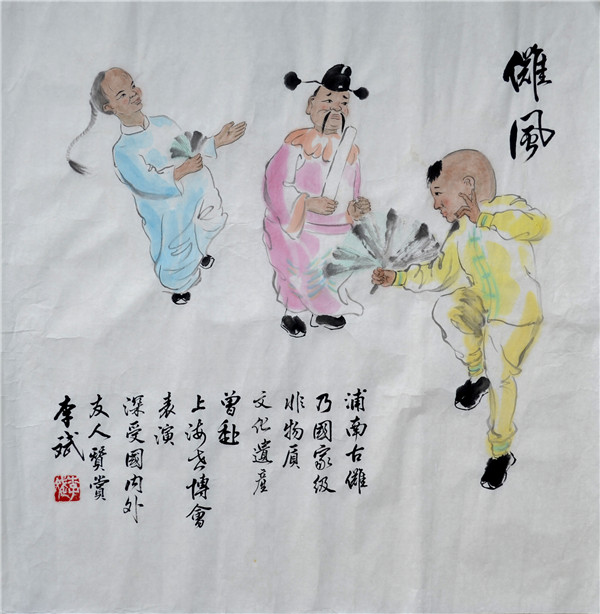 儺風
浦南古儺
乃國家级
非物质
文化遗产
曾赴
上海世博會
表演
深受國内外
友人賢赏
李斌